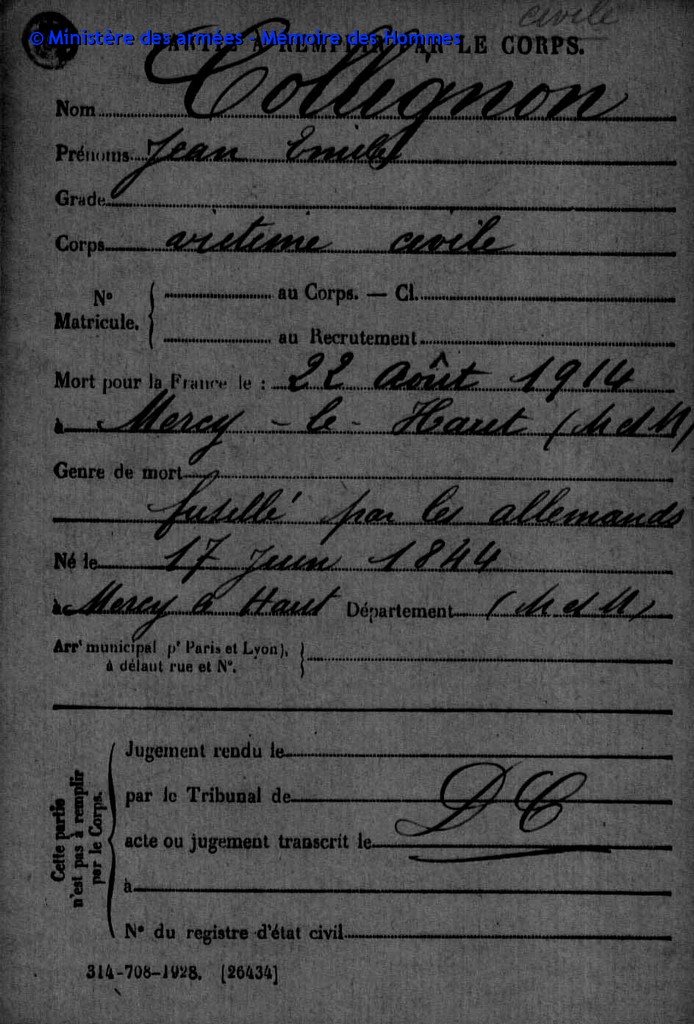 civile
© Ministère des armées - Mémoire des Hommes
PARTIE À REMPLIR PAR LE CORPS.
Nom Collignon
Prénoms Jean Emile
Grade
Corps victime civile
N° Matricule. { au Corps. — Cl.
au Recrutement
Mort pour la France le : 22 Août 1914
à Mercy-le-Haut (M et M)
Genre de mort
fusillé par les allemands
Né le 17 Juin 1844
à Mercy le Haut Département (M et M)
Arrt municipal pr Paris et Lyon),
à défaut rue et N°.
Jugement rendu le
par le Tribunal de
D C
acte ou jugement transcrit le
à
N° du registre d'état civil
Cette partie
n'est pas à remplir
par le Corps.
314-708-1928. [26434]